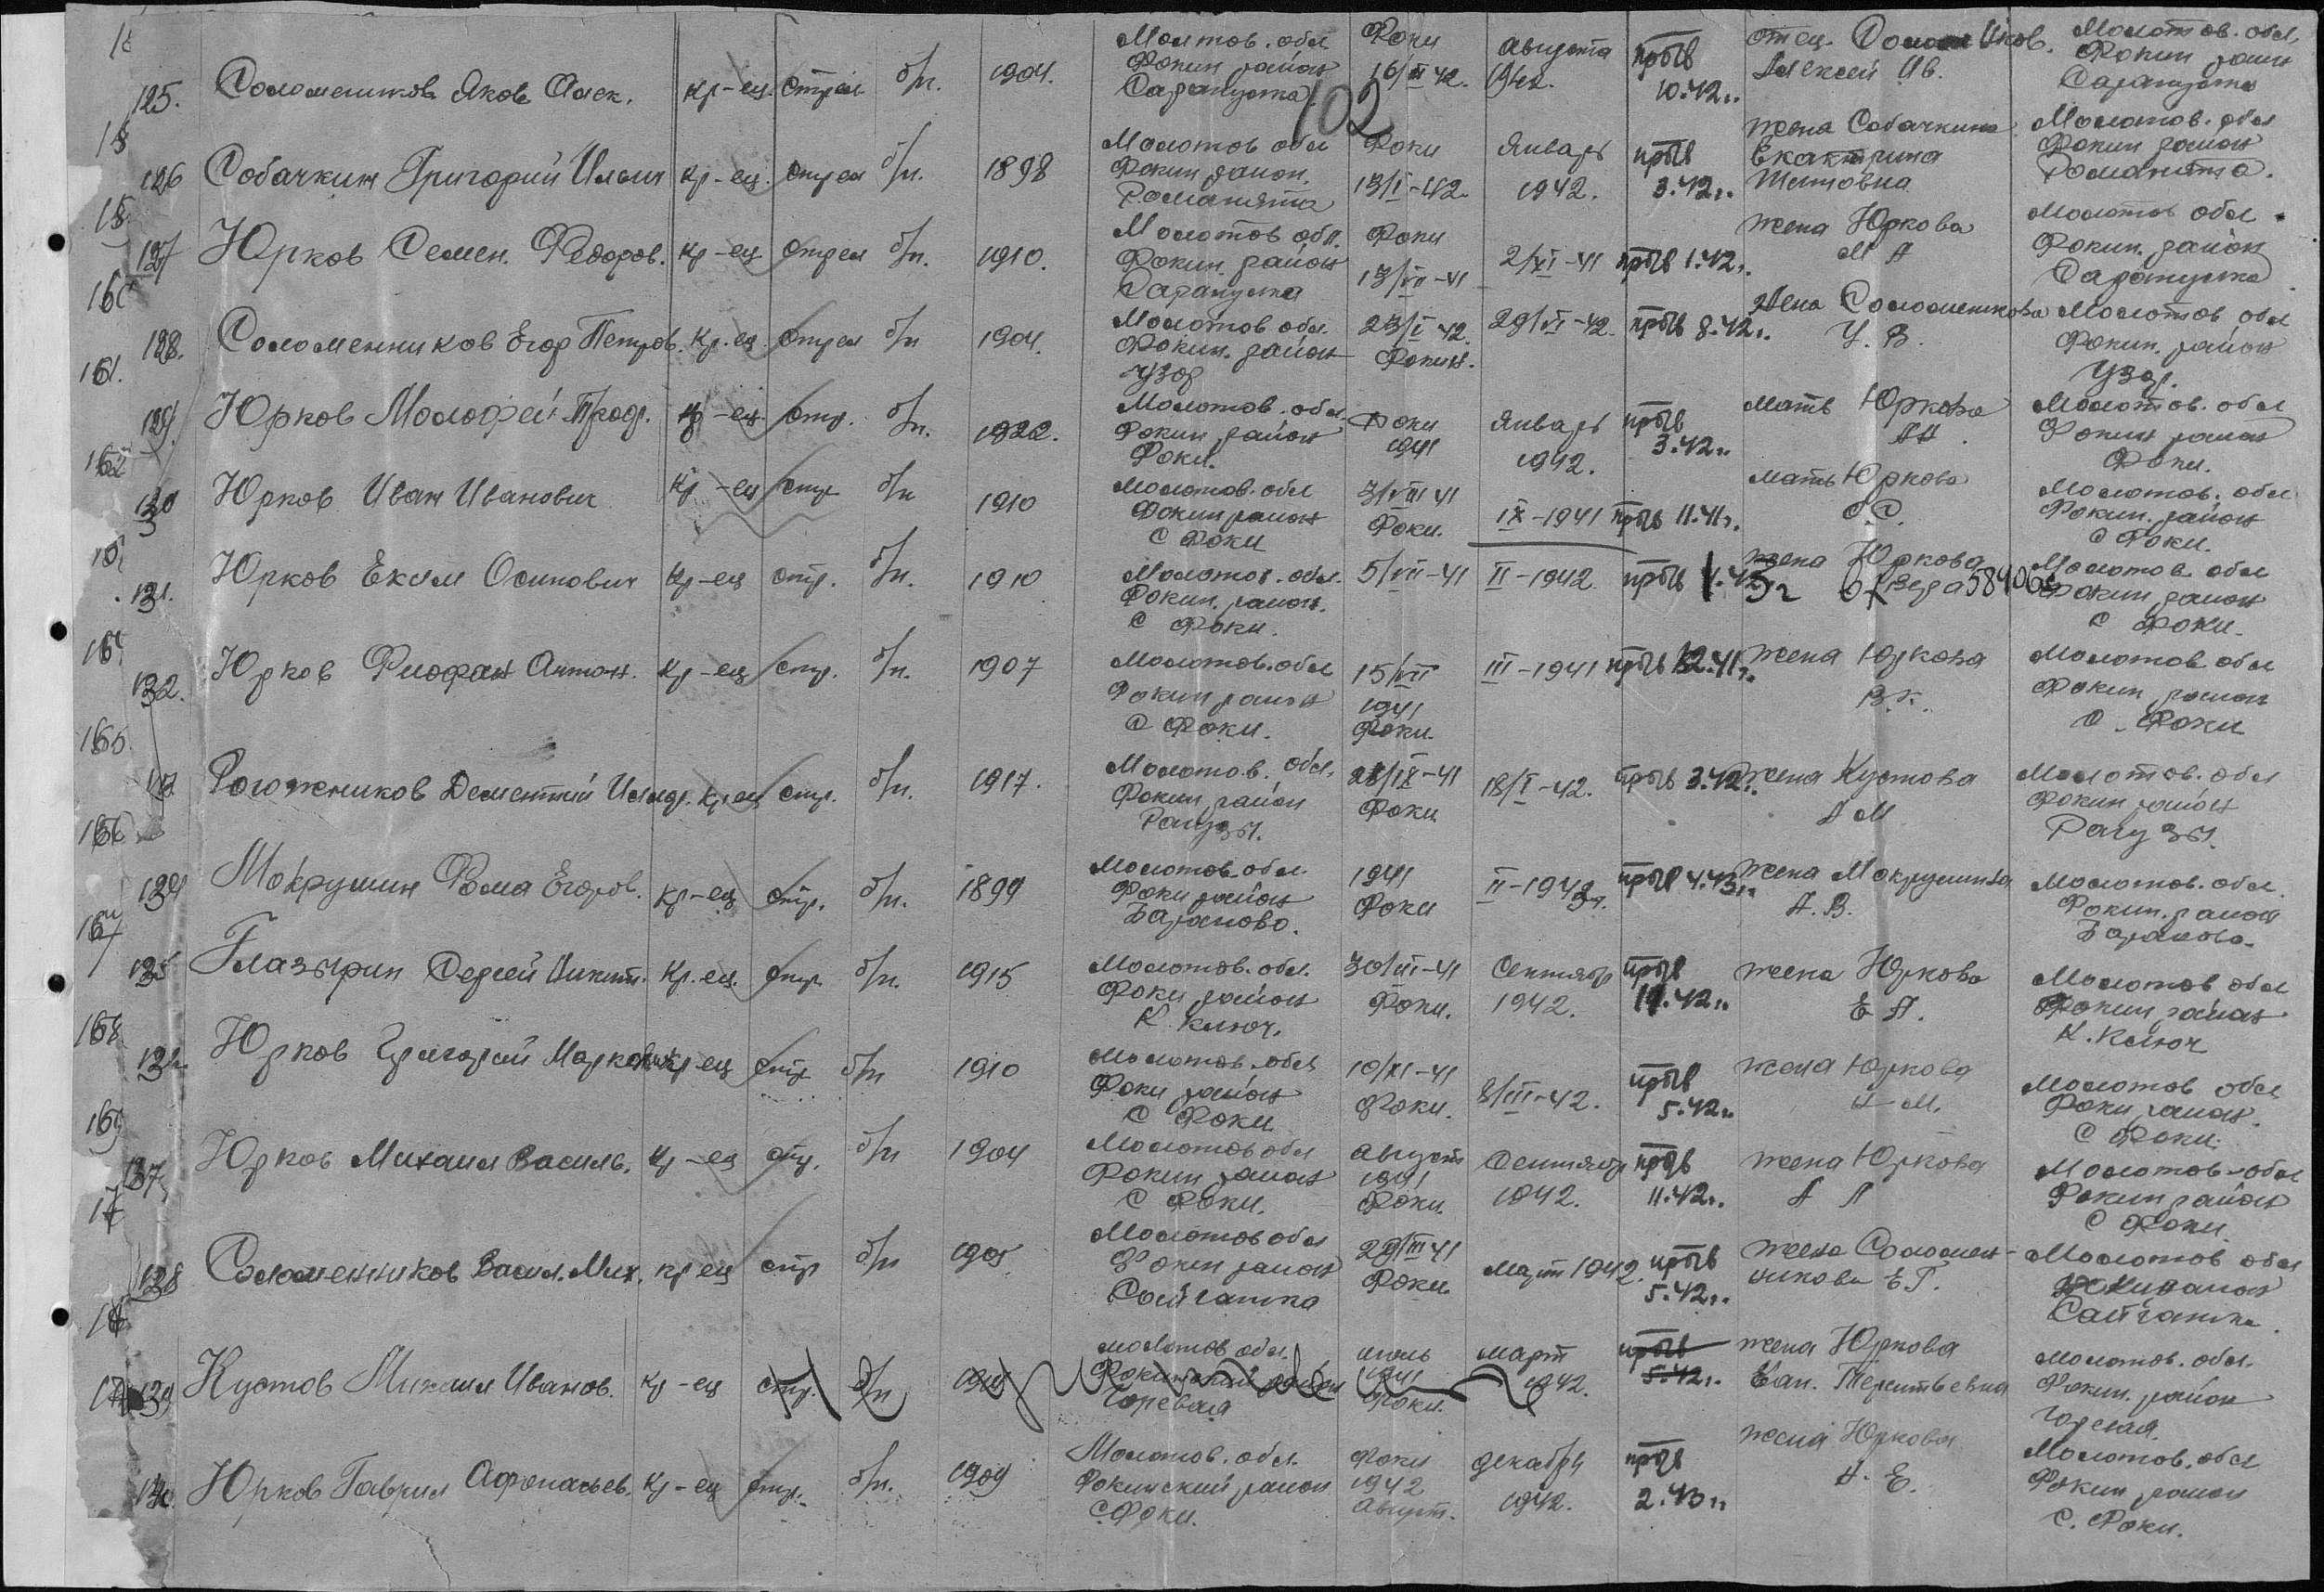 125. Соломенников Яков Алек. кр-ец. стрел б/п. 1904. Молотов. обл Фокин район Сарапулка Фоки 16/III 42. августа 1942. пр. б/в 10.42г. отец. Соломенников. Алексей Ив. Молотов. обл. Фокин район Сарапулка
102
126 Собачкин Григорий Ильич кр-ец. стрел б/п. 1898 Молотов обл Фокин район. Романята Фоки 13/I-42. Январь 1942. пр. б/в 3.42г. жена Собачкина Екатерина Титовна Молотов. обл Фокин район Романята.
127 Юрков Семен. Федоров. кр-ец стрел б/п. 1910. Молотов обл. Фокин. район Сарапулка Фоки 13/VII-41 2/XI-41 пр. б/в 1.42г. жена Юркова М А Молотов обл. Фокин. район Сарапулка
128. Соломенников Егор Петров. Кр.ец стрел б/п 1904. Молотов обл. Фокин. район Узяр 23/I 42. Фокин. 29/VI-42. пр. б/в 8.42г. Жена Соломенникова У. В. Молотов обл Фокин. район Узяр.
129. Юрков Молофей Трофр. кр-ец. стр. б/п. 1922. Молотов. обл. Фокин район Фоки. Фоки 1941 Январь 1942. пр. б/в 3.42г. мать Юркова АН. Молотов. обл Фокин район Фоки.
130 Юрков Иван Иванович Кр-ец стр б/п 1910 Молотов. обл Фокин район С Фоки 3/VIII 41 Фоки. IX-1941 пр. б/в 11.41г. мать Юркова О.С. Молотов. обл Фокин. район С Фоки.
131. Юрков Еким Осипович Кр-ец стр. б/п. 1910 Молотов. обл. Фокин. район. С Фоки. 5/VII-41 II-1942 пр. б/в жена Юркова 58406 Молотов обл Фокин район С Фоки.
132. Юрков Феофан Антон. кр-ец стр. б/п. 1907 Молотов. обл Фокин район С Фоки. 15/VII 1941 Фоки. III-1941 пр. б/в 12.41г. жена Юркова В. Молотов обл Фокин район С. Фоки
Рогожников Дементий Кр ец стр. б/п. 1917. Молотов. обл. Фокин район Рагузы. 28/IX-41 Фоки 18/I-42. пр. б/в 3.42г. жена Кустова А М Молотов. обл Фокин район Рагузы.
134 Мокрушин Фома Егоров. кр-ец стр. б/п. 1899 Молотов обл. Фоки район Бараново. 1941 Фоки II-1943г. пр. б/в 4.43г. жена Мокрушина А. В. Молотов. обл. Фокин. район Бараново.
135 Глазырин Сергей Никит. Кр.ец. стр. б/п. 1915 Молотов. обл. Фоки район К. Ключ. 30/VII-41 Фоки. Сентябр 1942. пр. б/в 11.42г. жена Юркова Е А. Молотов обл Фокин район К. Ключ
Юрков Григорий Маркович кр-ец стр б/п 1910 Молотов. обл Фоки район С Фоки 10/XI-41 Фоки. 8/III-42. пр. б/в 5.42г. жена Юркова А М. Молотов обл Фоки район. С Фоки.
137 Юрков Михаил Василь. кр-ец стр. б/п 1904 Молотов обл Фокин район С Фоки. Август 1941 Фоки. Сентябр 1942. пр. б/в 11.42г. жена Юркова А Л Молотов обл Фокин район С Фоки.
138 Соломенников Васил. Мих. кр ец стр б/п 1905 Молотов обл Фокин район Сайгатка 29/VIII 41 Фоки. Март 1942. пр. б/в 5.42г. жена Соломен-никова Е Г. Молотов обл Фокин район Сайгатка.
139 Кустов Михаил Иванов. кр-ец стр. б/п Молотов обл. Фокинский район Горевая июль 1941 Фоки. март 1942. пр. б/в 5.42г. жена Юркова Молотов. обл. Фокин. район Горевая.
140. Юрков Гаврил Афонасьев. Кр-ец стр. б/п. 1909 Молотов. обл. Фокинский район С. Фоки. Фоки 1942 Август. декабря 1942. пр. б/в 2.43г. жена Юркова А. Е. Молотов. обл Фокин район С. Фоки.